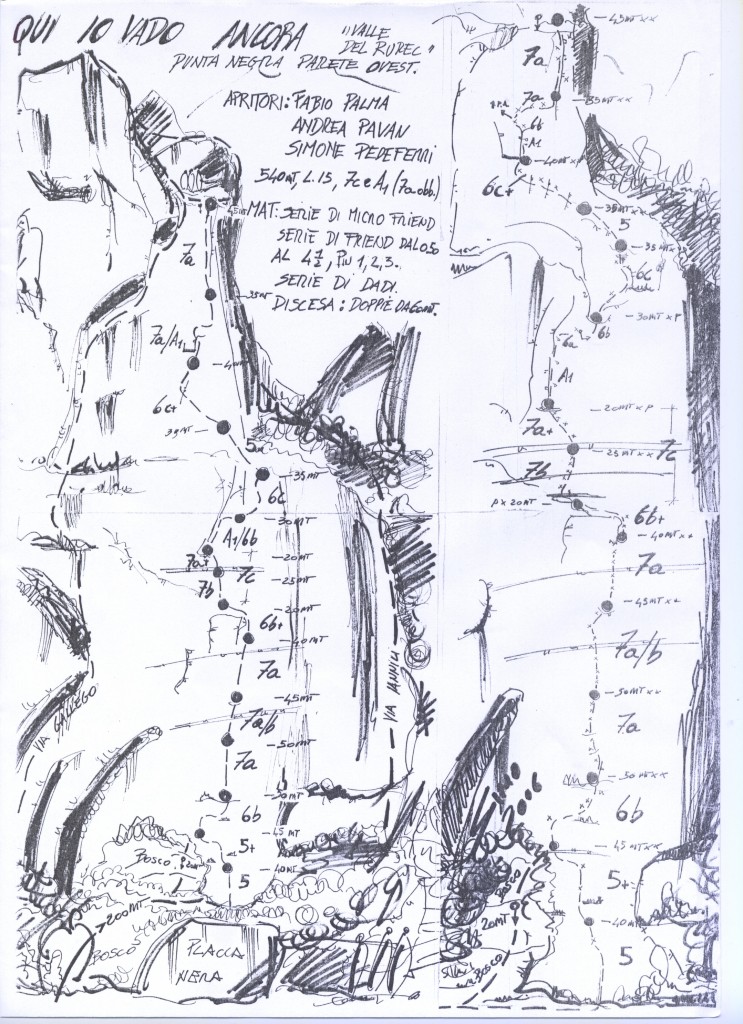 QUI IO VADO ANCORA
"VALLE
DEL RUREC"
PUNTA NEGRA PARETE OVEST.
APRITORI: FABIO PALMA
ANDREA PAVAN
SIMONE PEDEFERRI
540MT, L.15, 7c e A1 (7a obb.)
MAT: SERIE DI MICRO FRIEND
SERIE DI FRIEND DAL 0,50
AL 4½, PIU 1,2,3..
SERIE DI DADI.
DISCESA: DOPPIE DA 60MT.
7a
35MT
7a/A1
6c+
35MT
5
35MT
6c
30MT
A1/6b
20MT
7a+
7c
25MT
7b
20MT
6b+
40MT
7a
45MT
7a/b
50MT
7a
50MT
6b
45 MT
5+
40MT
5
VIA GALLEGO
VIA IANNILI
BOSCO
>200MT
BOSCO
PLACCA
NERA
45MT xx
7a
7a
35MT xx
6b
A1
40MT xP
6c+
35MT xx
5
35MT xx
6c
30MT xP
6b
6a
A1
20MT xP
7a+
25MT xx
7c
7b
Px 20MT
6b+
40MT xx
7a
45MT xx
7a/b
50MT xx
7a
50MT xx
6b
45MT xx
5+
40MT
5
20MT
BOSCO